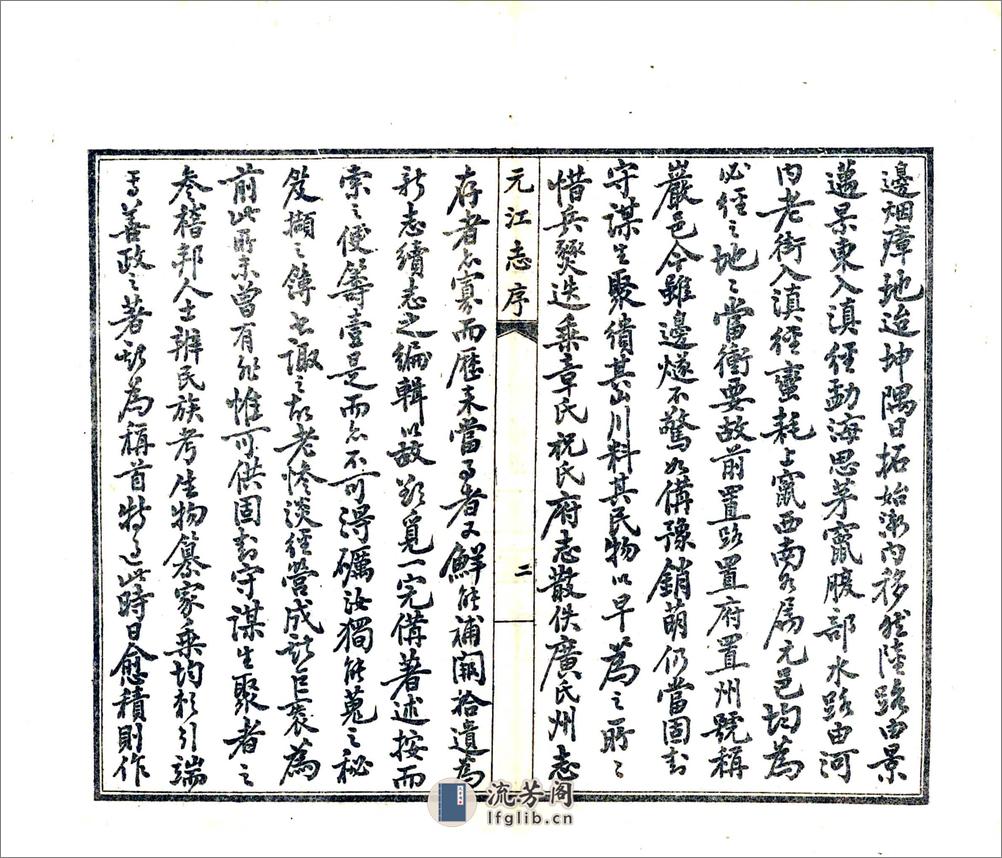 邊烟瘴地迨坤隅日拓始漸內移然陸路由景
邁景東入滇經勐海思茅甯腹部水路由河
內老街入滇經蠻耗上竄西南如爲元邑均爲
必經之地地當衝要故前置路置府置州號稱
嚴邑今雖邊燧不驚如備豫銷萌仍當固封
守謀生聚繢其山川料其民物以早爲之所所
惜兵燹迭乘章氏祝氏府志散佚廣氏州志
元江志序
二
存者亦寡而歷來當事者又鮮能補闕拾遺爲
新志續志之編輯以故欲覓一完備著述按而
索之便籌壹是而亦不可得礪汝獨能蒐之秘
笈擷之簿書諏之故老慘淡經營成訢巨袠爲
前此所未曾有非惟可供固封守謀生聚者之
叅稽邦人士辨民族考生物纂家乘均教引端
焉善政之著訢爲稱首特過此時日愈積則作
流芳阁
lfglib.cn